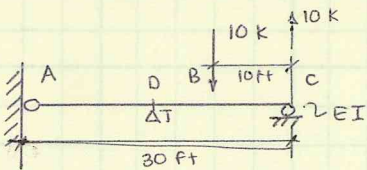 10 K
10 K
A
D
B
10 ft
C
ΔT
2 EI
30 ft